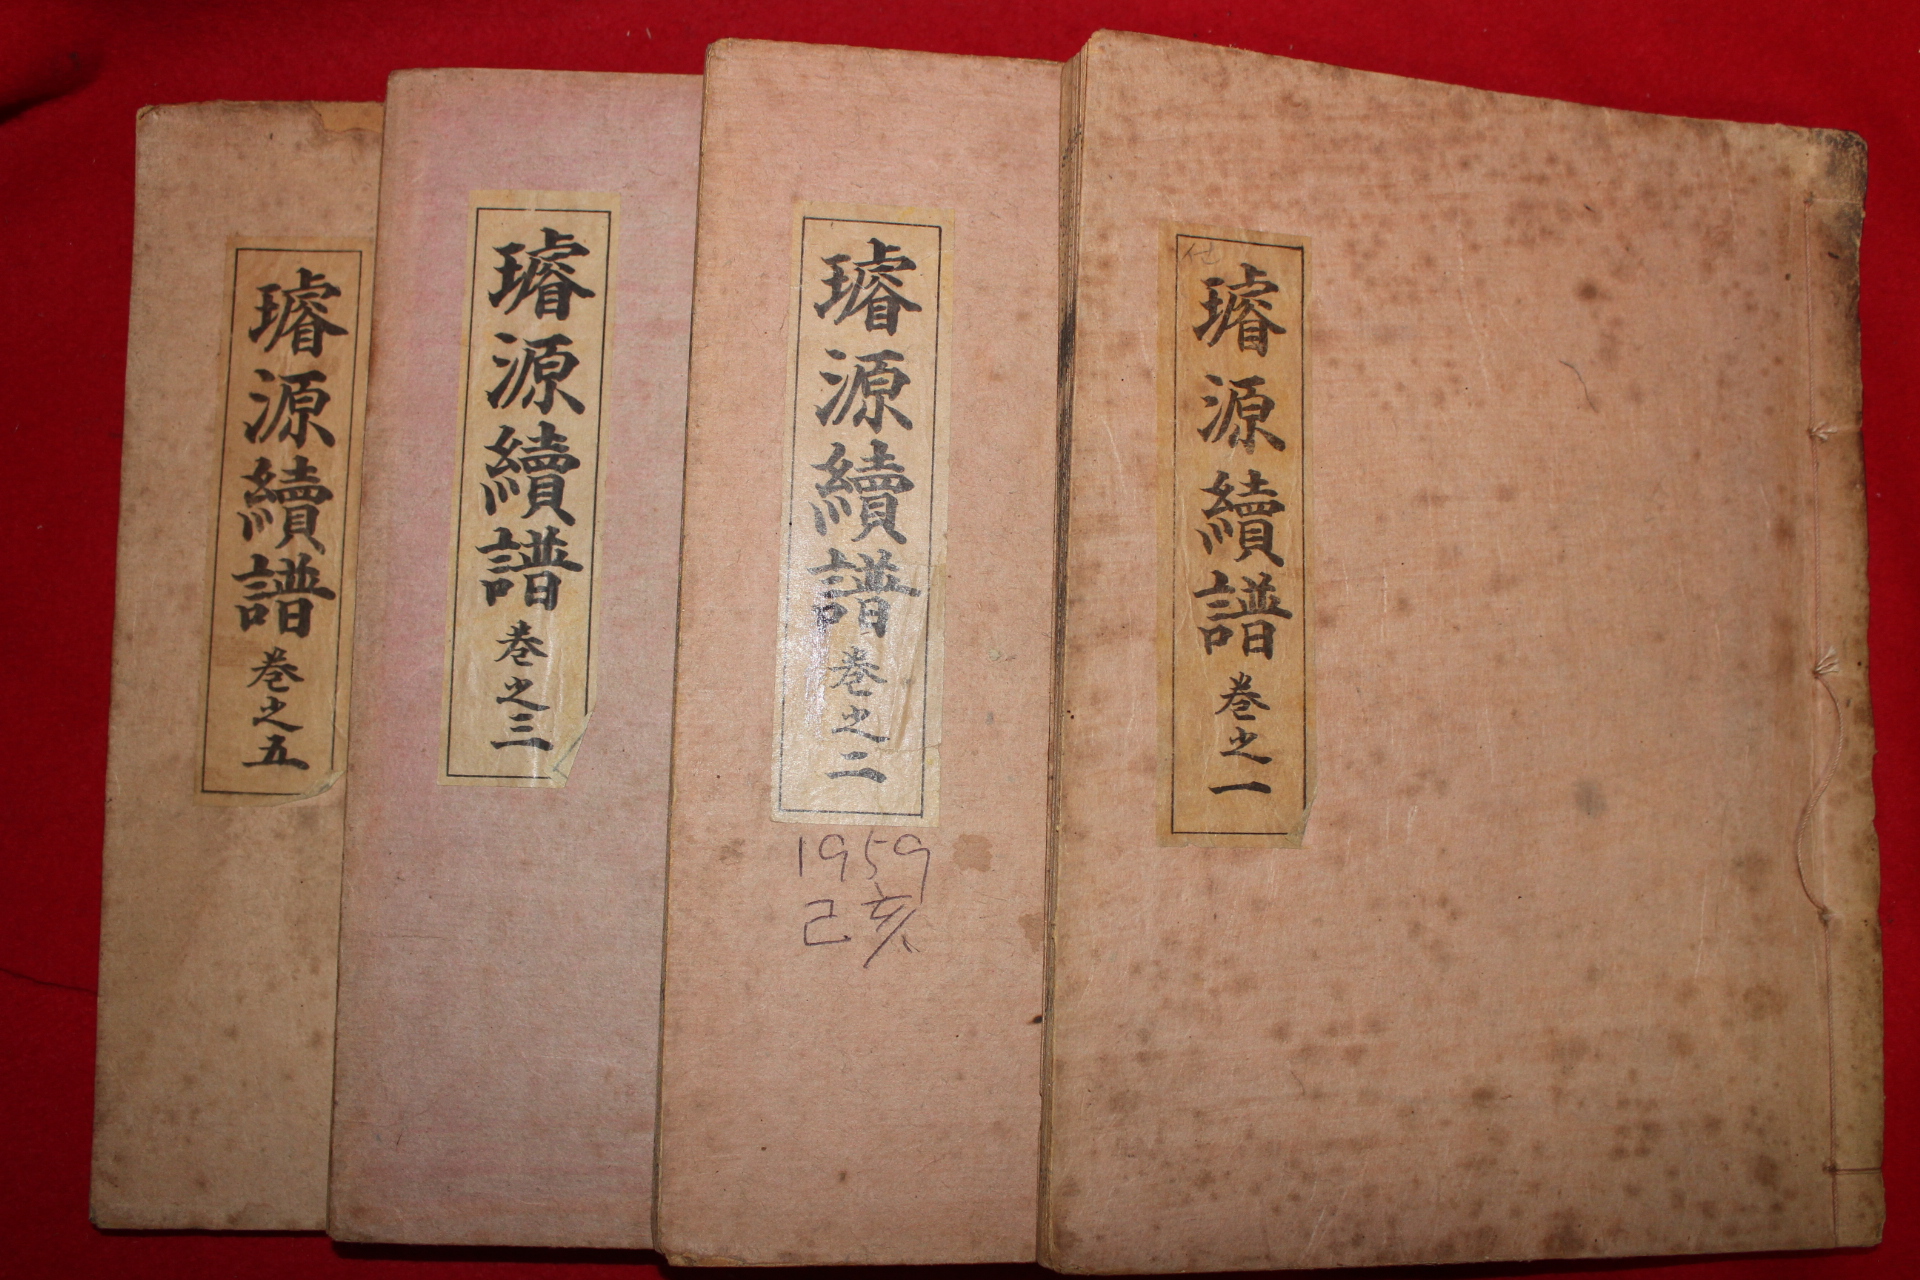 璿源續譜 卷之一
璿源續譜 卷之二
1959
己亥
璿源續譜 卷之三
璿源續譜 卷之五